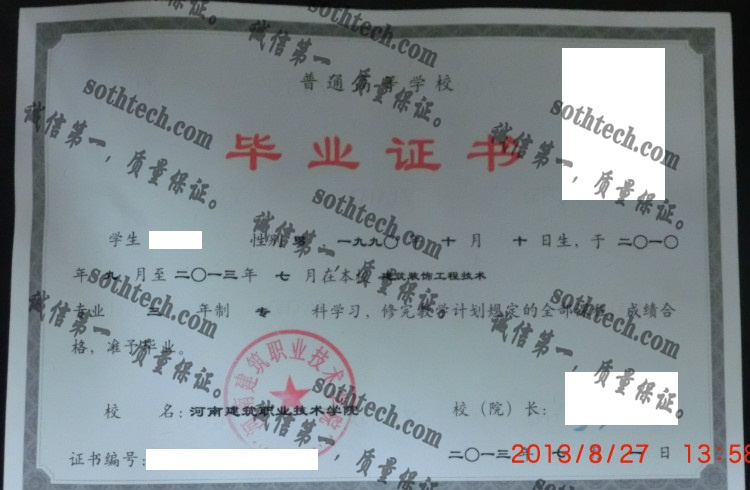 普通高等学校
毕业证书
学生 性别 男 一九九〇年 十 月 十 日生，于 二〇一〇
年 九 月至 二〇一三年 七 月在本校 建筑装饰工程技术
专业 三 年制 专 科学习，修完教学计划规定的全部课程，成绩合
格，准予毕业。
校 名：河南建筑职业技术学院
校（院）长：
证书编号：
二〇一三年 七 月 一 日
河南建筑职业技术学院
2013/8/27 13:58
sothtech.com
诚信第一，质量保证。
sothtech.com
诚信第一，质量保证。
sothtech.com
诚信第一，质量保证。
sothtech.com
诚信第一，质量保证。
sothtech.com
诚信第一，质量保证。
sothtech.com
诚信第一，质量保证。
sothtech.com
诚信第一，质量保证。